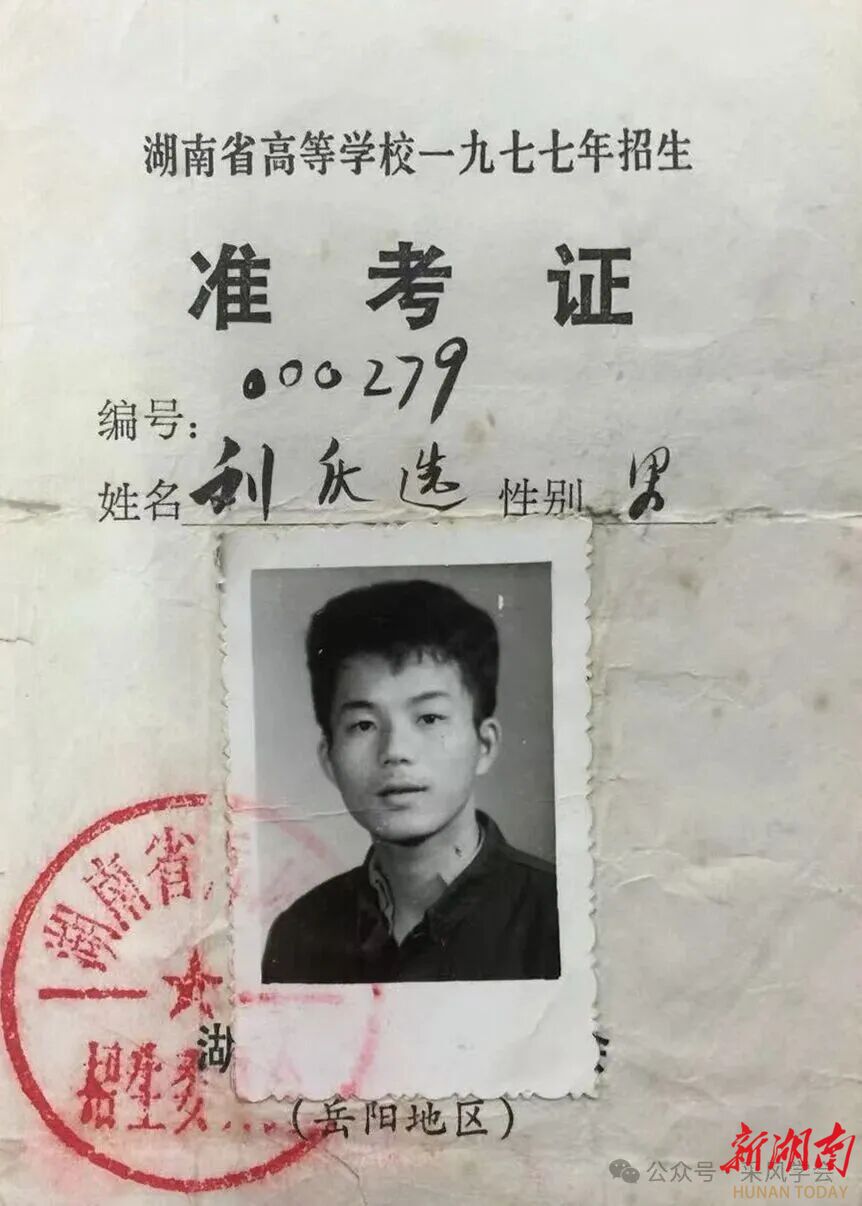 湖南省高等学校一九七七年招生
准考证
编号：000279
姓名 刘庆选 性别 男
湖南省
招生委
湖
(岳阳地区)
公众号 采风学会
新湖南
HUNAN TODAY